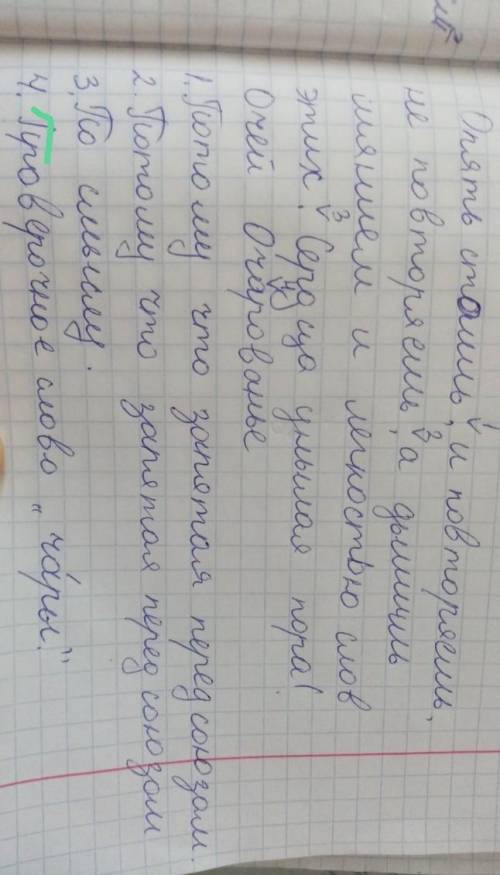 Опять стоишь, и повторяешь,
не повторяешь, а дышишь
сиянием и легкостью слов
этих. Сердца унылая пора!
Очей Очарованье
1. Потому что запятая перед союзом.
2. Потому что запятая перед союзом
3. По смыслу.
4. Проверочное слово „ча́ры.”